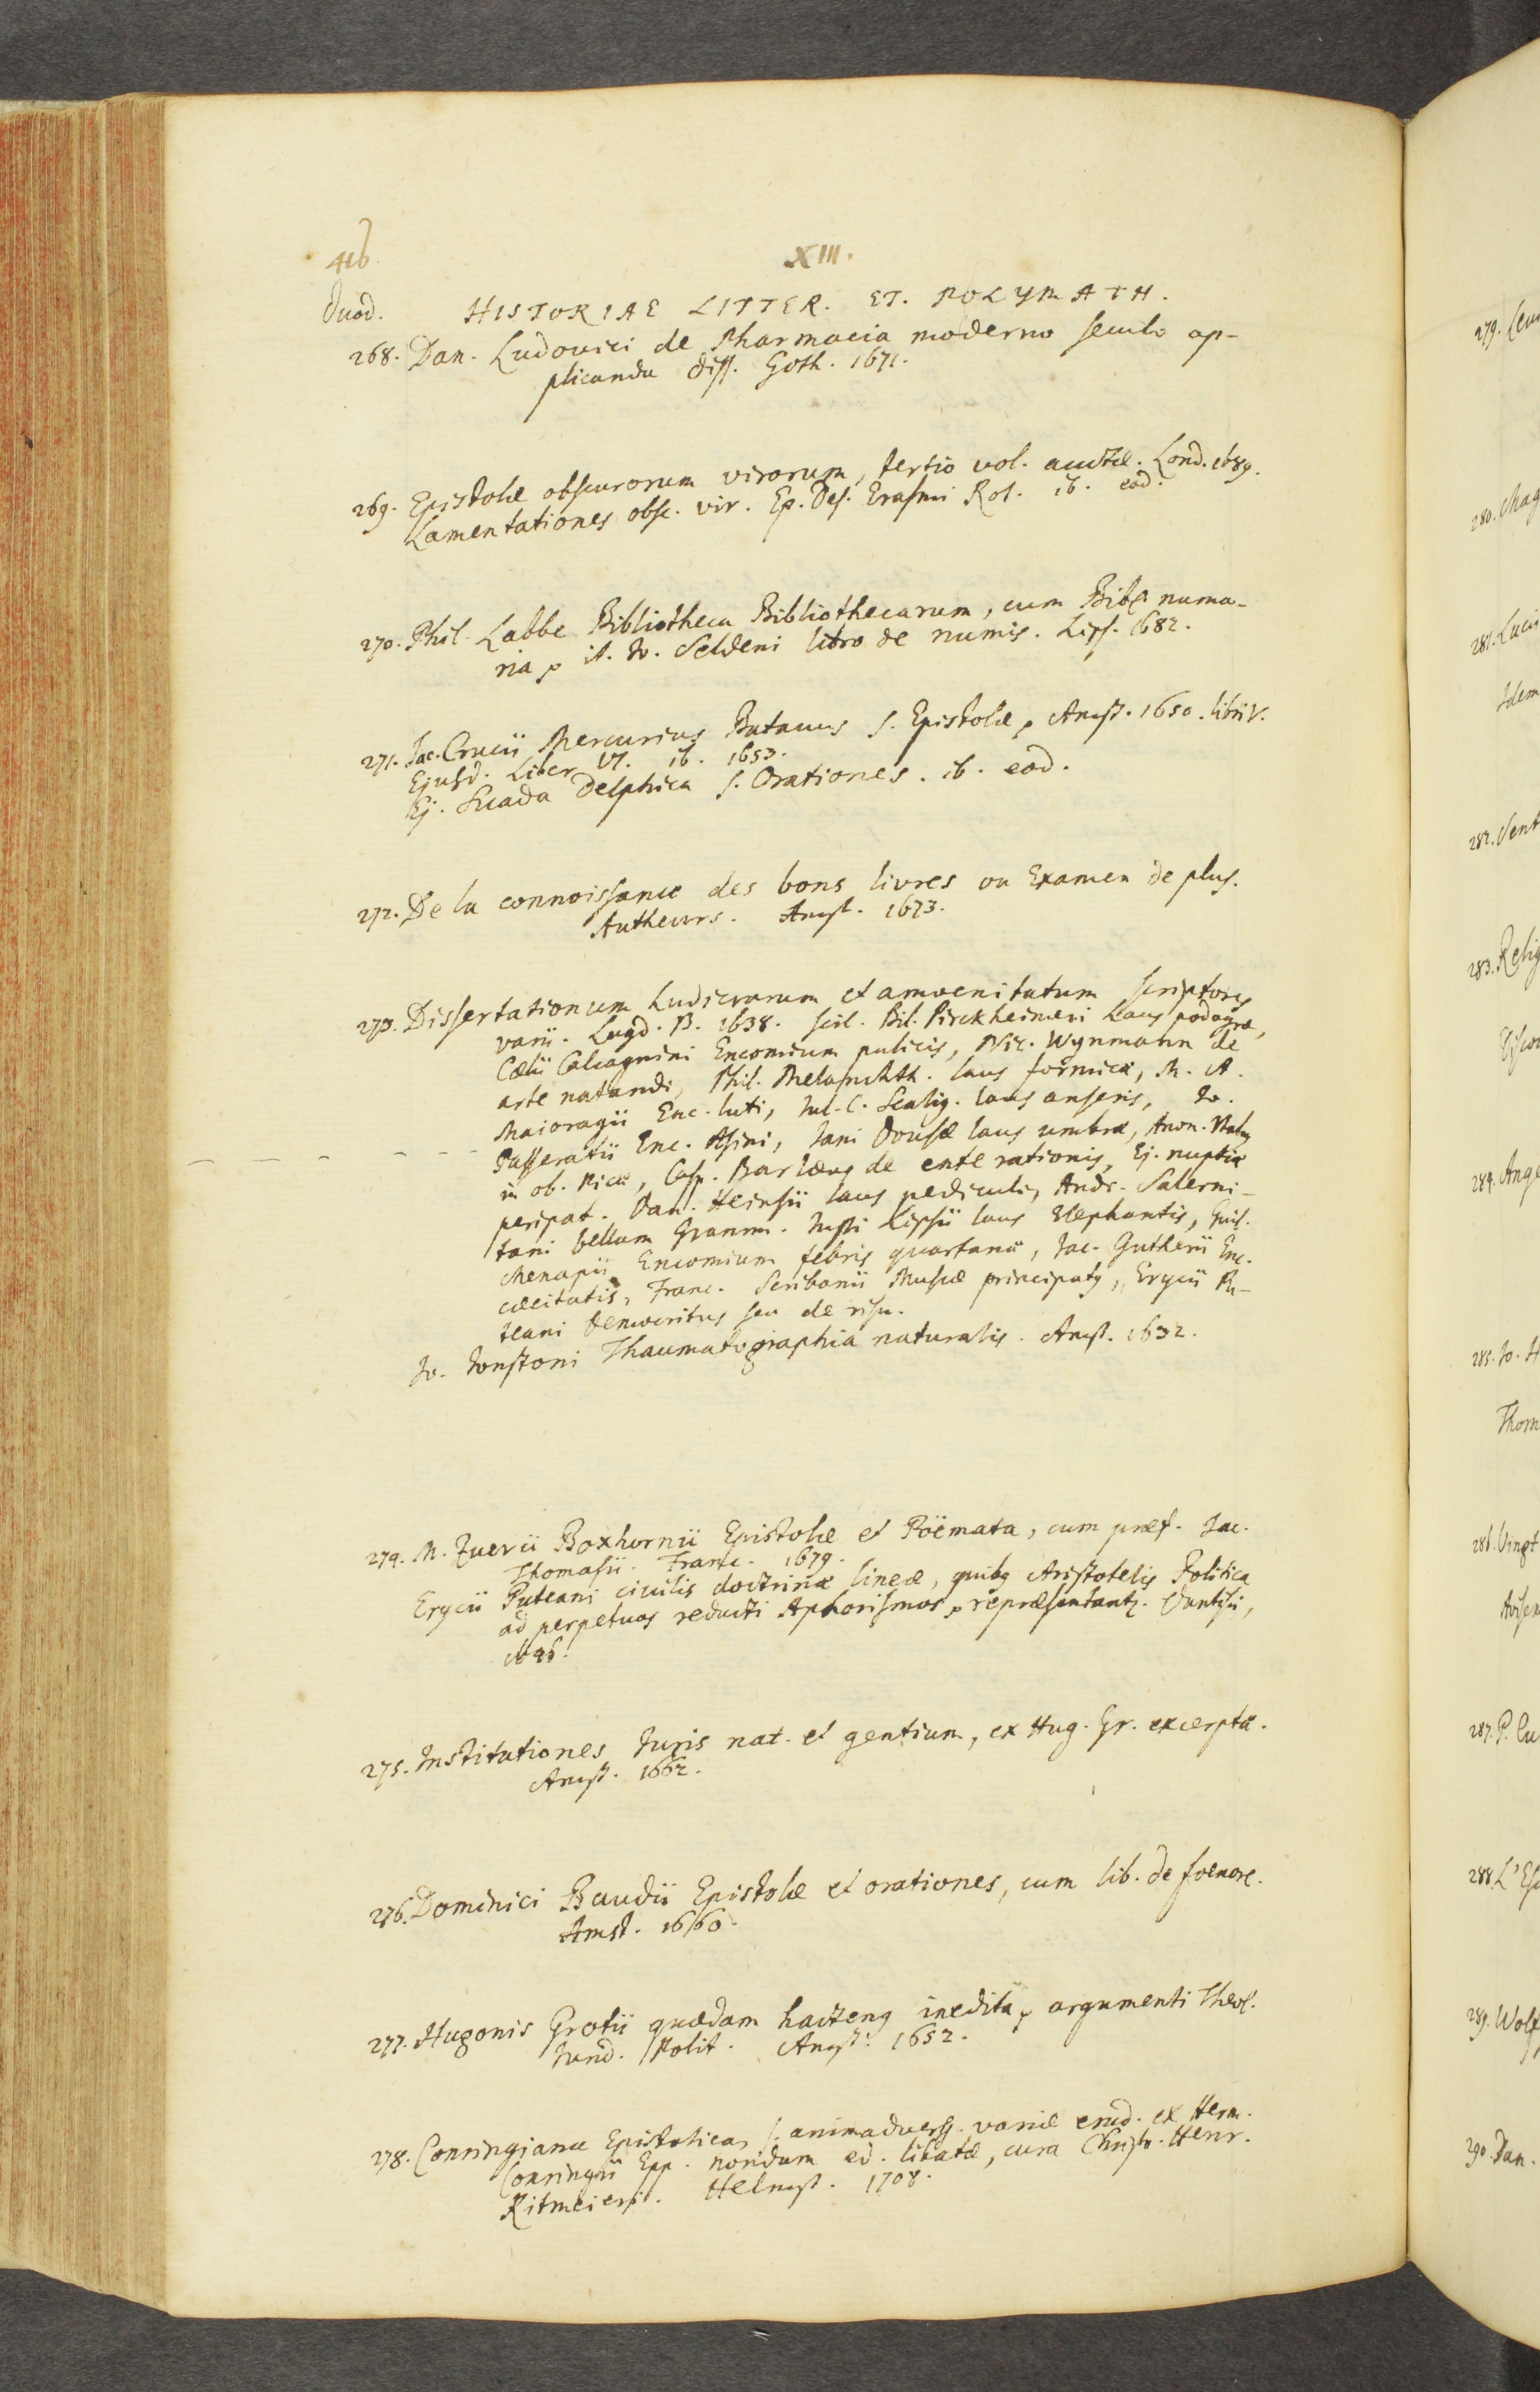 416
XIII.
Duod. HISTORIAE LITTER. ET. POLYMATH.
268. Dan. Ludovici de Pharmacia moderno seculo ap-
plicanda diss. Goth. 1671.
269. Epistolæ obscurorum virorum, tertio vol. auctæ. Lond. 1689.
Lamentationes obsc. vir. Ep. Des. Erasmi Rot. ib. eod.
270. Phil. Labbe Bibliotheca Bibliothecarum, cum Bibl. numa-
ria, it. Jo. Seldeni libro de numis. Lips. 1682.
271. Jac. Crucii Mercurius Batavus s. Epistolæ, Amst. 1650. libri V.
Ejusd. Liber VI. ib. 1653.
Ej. Suada Delphica s. Orationes. ib. eod.
272. De la connoissance des bons livres ou Examen de plus.
Autheurs. Amst. 1673.
273. Dissertationum Ludicrarum et amoenitatum scriptores
varii. Lugd. B. 1638. scil. Bil. Pirckheimeri Laus podagræ,
Cælii Calcagnini Encomium pulicis, Nic. Wynmann de
arte natandi, Phil. Melanchth. laus formicæ, M. A.
Maioragii Enc. luti, Jul. C. Scalig. laus anseris, Jo.
Passeratii Enc. Asini, Jani Dousæ laus umbræ, Anon.
in ob. Picæ, Casp. Barlæus de ente rationis, Ej. nuptiæ
peripat. Dan. Heinsii laus pediculi, Andr. Salerni-
tani bellum Gramm. Justi Lipsii laus Elephantis, Guil.
Menapii Encomium febris quartanæ, Jac. Gutherii Enc.
cæcitatis, Franc. Scribanii Muscæ principatus, Erycii Pu-
teani Democritus seu de risu.
Jo. Jonstoni Thaumatographia naturalis. Amst. 1632.
274. M. Zuerii Boxhornii Epistolæ et Poëmata, cum præf. Jac.
Thomasii. Franc. 1679.
Erycii Puteani civilis doctrinæ lineæ, quibus Aristotelis Politica
ad perpetuos reducti Aphorismos, repræsentantur. Dantisci,
1646.
275. Institutiones Juris nat. et gentium, ex Hug. Gr. excerptæ.
Amst. 1662.
276. Dominici Baudii Epistolæ et orationes, cum lib. de foenore.
Amst. 1660.
277. Hugonis Grotii quædam hactenus inedita, argumenti Theol.
Jurid. Polit. Amst. 1652.
278. Conringiana Epistolica, s. animadverss. variæ erud. ex Herm.
Conringii Epp. nondum ed. libatæ, cura Christo. Henr.
Ritmeieri. Helmst. 1708.
279.
280. Mag
281. Luci
Idem
282. Sent
283. Relig
284. Ange
285. Jo. H
Thom
286. Vingt
287. P. Cu
288. L'Es
289. Wolf
290. Dan.